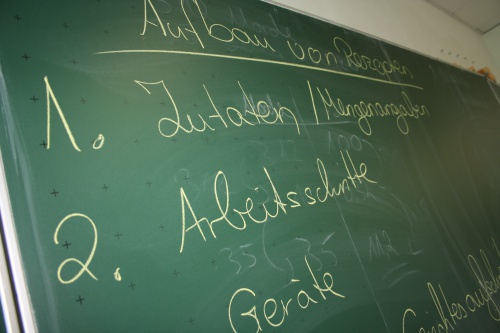 Aufbau von Rezepten
1. Zutaten / Mengenangaben
2. Arbeitsschritte
Geräte